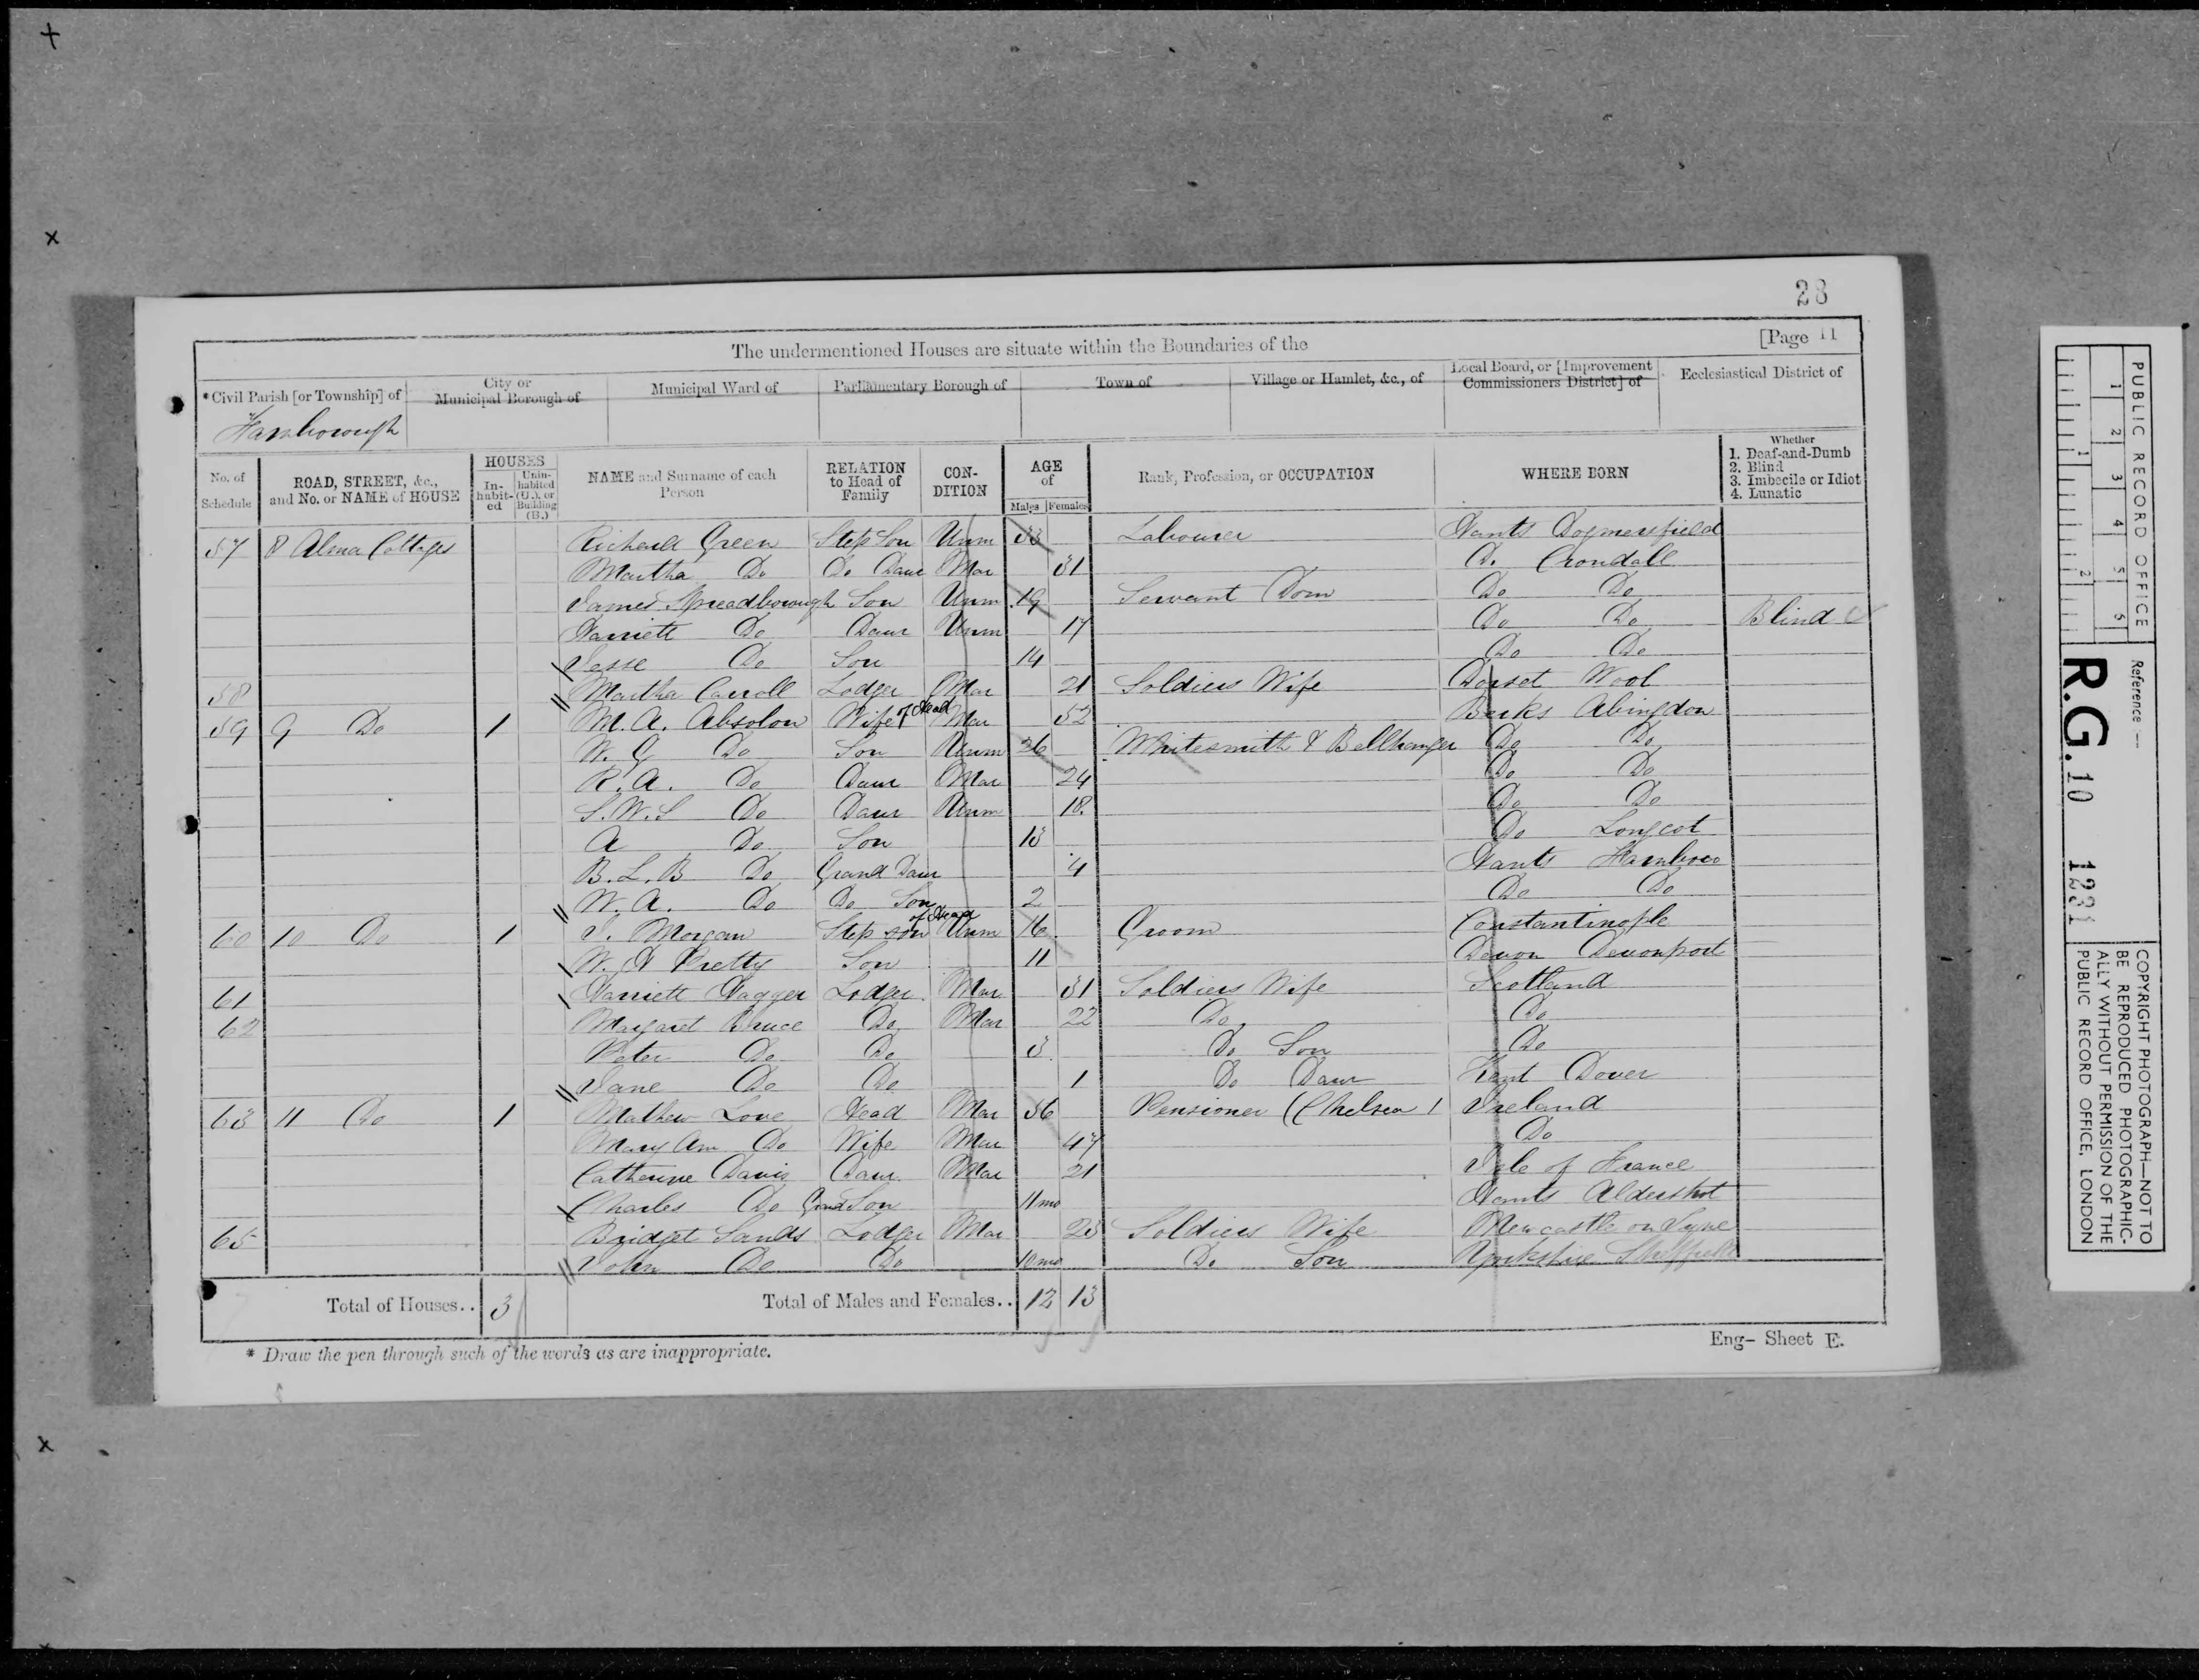 28
[Page 11
The undermentioned Houses are situate within the Boundaries of the
*Civil Parish [or Township] of City or Municipal Borough of Municipal Ward of Parliamentary Borough of Town of Village or Hamlet, &c., of Local Board, or [Improvement Commissioners District] of Ecclesiastical District of
Farnborough
No. of Schedule ROAD, STREET, &c., and No. or NAME of HOUSE HOUSES In-habit-ed Unin-habited (U.), or Building (B.) NAME and Surname of each Person RELATION to Head of Family CON-DITION AGE of Males Females Rank, Profession, or OCCUPATION WHERE BORN Whether 1. Deaf-and-Dumb 2. Blind 3. Imbecile or Idiot 4. Lunatic
57 8 Alma Cottages Richard Green Step Son Unm 33 Labourer Hants Dogmersfield
Martha Do Do Daur Mar 31 Do Crondall
James Spreadborough Son Unm 19 Servant Dom Do Do
Harriett Do Daur Unm 17 Do Do Blind
Jesse Do Son 14 Do Do
58 Martha Carroll Lodger Mar 21 Soldiers Wife Dorset Wool
59 9 Do 1 M. A. Absolon Wife of Head Mar 52 Berks Abingdon
W. G Do Son Unm 26 Whitesmith & Bellhanger Do Do
R. A. Do Daur Mar 24 Do Do
S. W. S Do Daur Unm 18 Do Do
A Do Son 13 Do Longcot
B. L. B Do Grand Daur 4 Hants Farnboro
W. A. Do Do Son 2 Do Do
60 10 Do 1 J. Morgan Step son of Head Unm 16 Groom Constantinople
W. H Pretty Son 11 Devon Devonport
61 Harriett Wagger Lodger Mar 31 Soldiers Wife Scotland
62 Margaret Bruce Do Mar 22 Do Do
Peter Do Do 3 Do Son Do
Jane Do Do 1 Do Daur Kent Dover
63 11 Do 1 Mathew Love Head Mar 56 Pensioner (Chelsea) Ireland
Mary Ann Do Wife Mar 47 Do
Catherine Davis Daur Mar 21 Isle of France
Charles Do Grand Son 11 mo Hants Aldershot
65 Bridget Sands Lodger Mar 23 Soldiers Wife Newcastle on Tyne
John Do Do 10 mo Do Son Yorkshire Sheffield
Total of Houses.. 3 Total of Males and Females.. 12 13
* Draw the pen through such of the words as are inappropriate.
Eng- Sheet E.
PUBLIC RECORD OFFICE
1 2 3 4 5 6
1 2
Reference :-
R.G. 10 1231
COPYRIGHT PHOTOGRAPH—NOT TO
BE REPRODUCED PHOTOGRAPHIC-
ALLY WITHOUT PERMISSION OF THE
PUBLIC RECORD OFFICE, LONDON